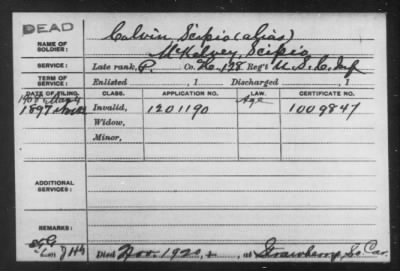 DEAD
Calvin Scipio (alias)
NAME OF SOLDIER: McKelvey, Scipio
SERVICE: Late rank, P. Co. H. 128 Reg't U.S.C. Inf
TERM OF SERVICE: Enlisted , 1 Discharged , 1
DATE OF FILING. CLASS. APPLICATION NO. LAW. CERTIFICATE NO.
1908 Age
1897 Invalid, 1201190 1009847
Widow,
Minor,
ADDITIONAL SERVICES:
REMARKS:
Died Nov. 1920, , at Strawberry, So Car.